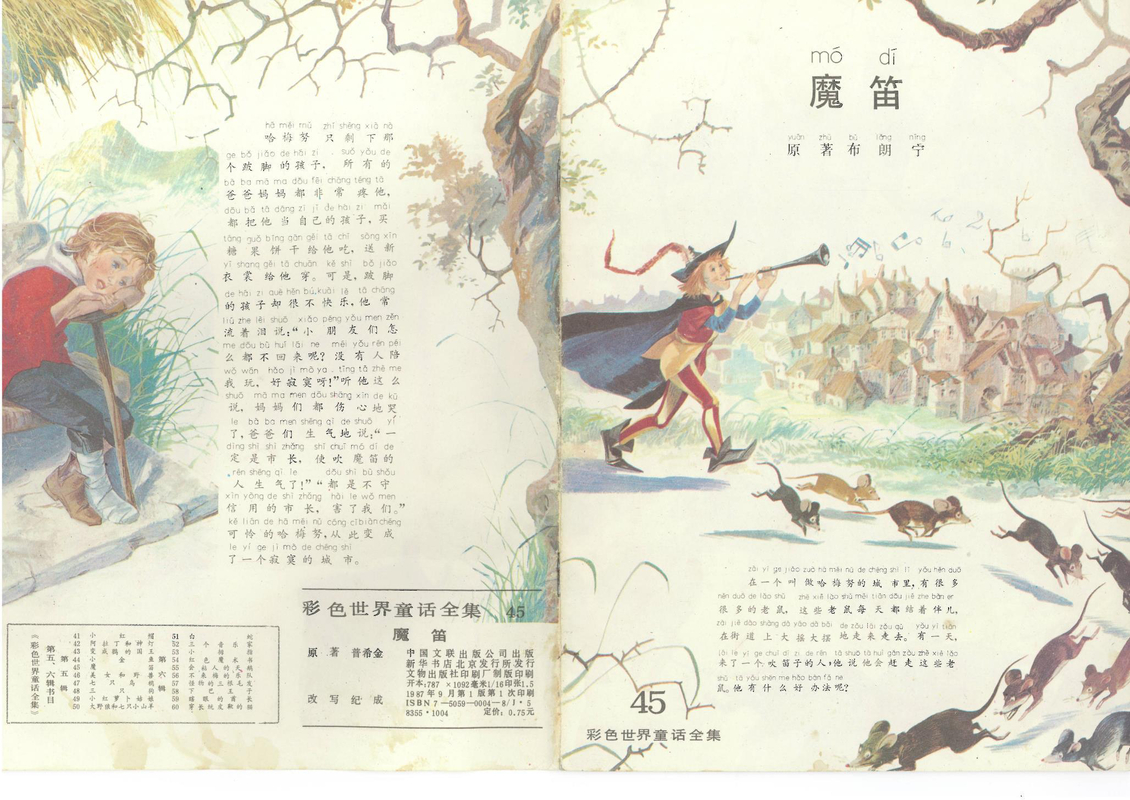 hā měi nǔ zhǐ shèng xià nà
哈梅努只剩下那
ge bǒ jiǎo de hái zi suǒ yǒu de
个跛脚的孩子，所有的
bà ba mā ma dōu fēi cháng téng tā
爸爸妈妈都非常疼他，
dōu bǎ tā dāng zì jǐ de hái zi mǎi
都把他当自己的孩子，买
táng guǒ bǐng gān gěi tā chī sòng xīn
糖果饼干给他吃，送新
yī shang gěi tā chuān kě shì bǒ jiǎo
衣裳给他穿。可是，跛脚
de hái zi què hěn bú kuài lè tā cháng
的孩子却很不快乐，他常
liú zhe lèi shuō xiǎo péng yǒu men zěn
流着泪说：“小朋友们怎
me dōu bù huí lái ne méi yǒu rén péi
么都不回来呢？没有人陪
wǒ wán hǎo jì mò ya tīng tā zhè me
我玩，好寂寞呀！”听他这么
shuō mā ma men dōu shāng xīn de kū
说，妈妈们都伤心地哭
le bà ba men shēng qì de shuō yí
了，爸爸们生气地说：“一
dìng shì shì zhǎng shǐ chuī mó dí de
定是市长，使吹魔笛的
rén shēng qì le dōu shì bù shǒu
人生气了！”“都是不守
xìn yòng de shì zhǎng hài le wǒ men
信用的市长，害了我们。”
kě lián de hā měi nǔ cóng cǐ biàn chéng
可怜的哈梅努，从此变成
le yí ge jì mò de chéng shì
了一个寂寞的城市。
彩色世界童话全集 45
魔笛
原著 普希金
改写 纪成
中国文联出版公司出版
新华书店北京发行所发行
文物出版社印刷厂制版印刷
开本：787×1092毫米1/16印张1.5
1987年9月第1版第1次印刷
ISBN7—5059—0004—8/I·5
8355·1004 定价：0.75元
《彩色世界童话全集》
第五、六辑书目
第五辑
41 小红帽
42 阿拉丁和神灯
43 变成鹅的国王
44 小金鱼
45 魔笛
46 美女和野兽
47 七只乌鸦
48 三只狗
49 小红萝卜姑娘
50 大野狼和七只小山羊
第六辑
51 白蛇
52 三个音乐家
53 小拇指
54 红色魔术书
55 会姑人的天鹅
56 不来梅的乐队
57 怪物的三根毛发
58 下巴王子
59 瞎眼的酋长
60 穿长靴皮靴的猫
mó dí
魔笛
yuán zhù bù lǎng níng
原著布朗宁
zài yí ge jiào zuò hā měi nǔ de chéng shì lǐ yǒu hěn duō
在一个叫做哈梅努的城市里，有很多
hěn duō de lǎo shǔ zhè xiē lǎo shǔ měi tiān dōu jié zhe bàn er
很多的老鼠，这些老鼠每天都结着伴儿，
zài jiē dào shàng dà yáo dà bǎi de zǒu lái zǒu qù yǒu yì tiān
在街道上大摇大摆地走来走去。有一天，
lái le yí ge chuī dí zi de rén tā shuō tā huì gǎn zǒu zhè xiē lǎo
来了一个吹笛子的人，他说他会赶走这些老
shǔ tā yǒu shén me hǎo bàn fǎ ne
鼠。他有什么好办法呢？
45
彩色世界童话全集